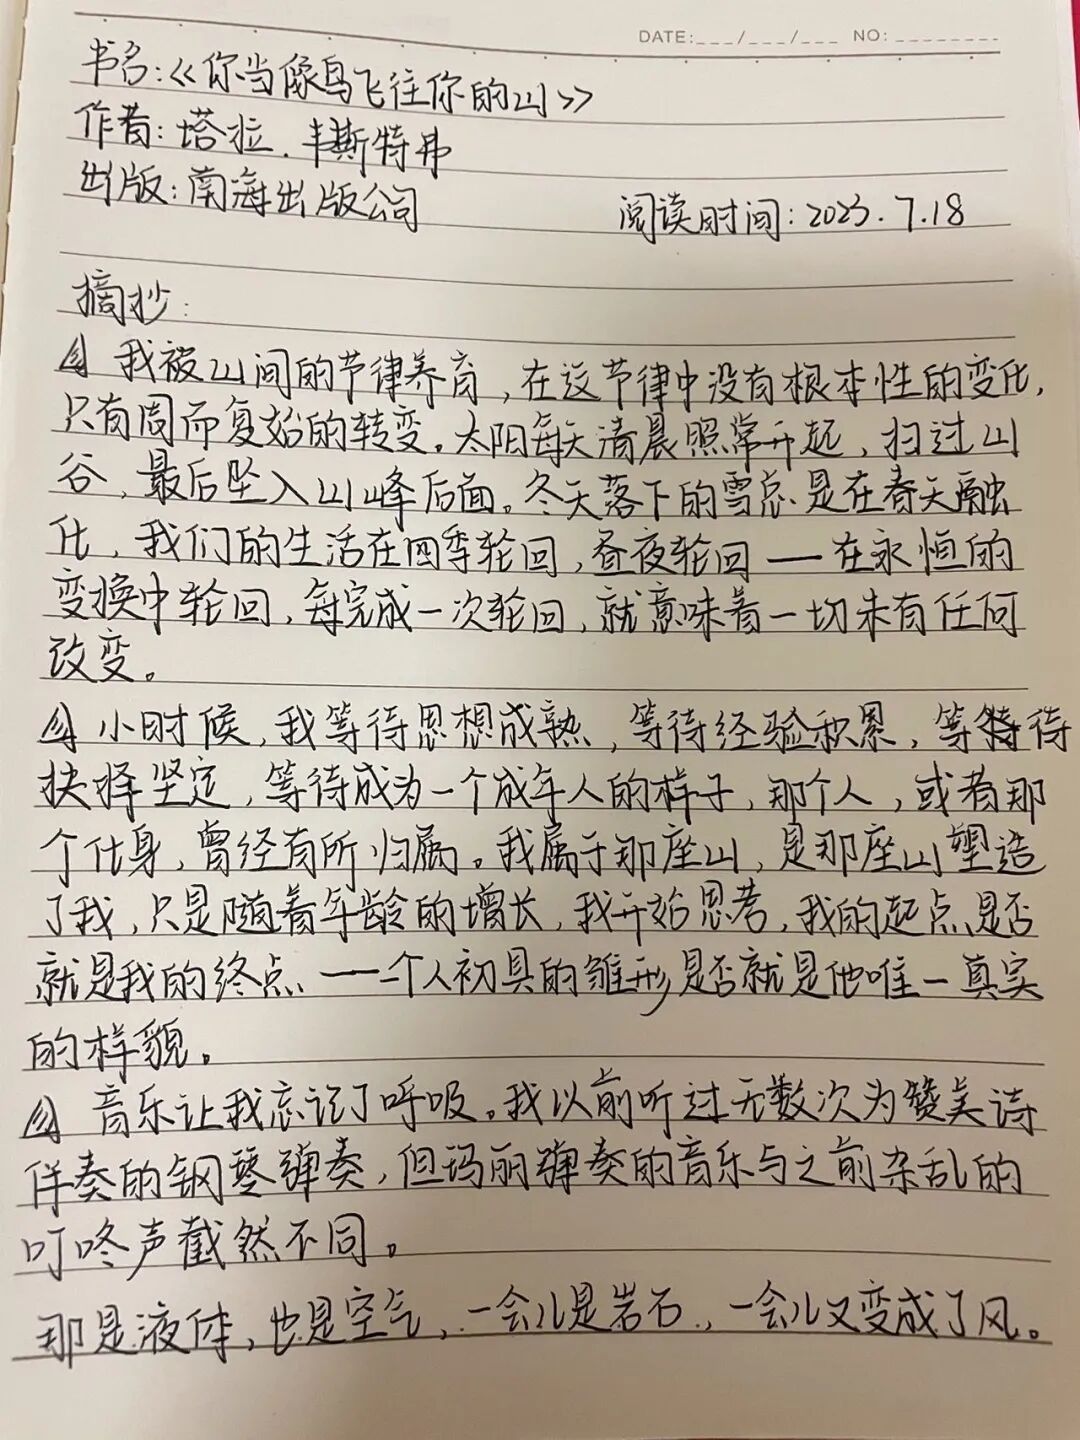 DATE:___/___/___ NO:________
书名:《你当像鸟飞往你的山》
作者:塔拉.韦斯特弗
出版:南海出版公司 阅读时间:2023.7.18
摘抄:
我被山间的节律养育,在这节律中没有根本性的变化,
只有周而复始的转变。太阳每天清晨照常升起,扫过山
谷,最后坠入山峰后面。冬天落下的雪总是在春天融
化,我们的生活在四季轮回,昼夜轮回——在永恒的
变换中轮回,每完成一次轮回,就意味着一切未有任何
改变。
小时候,我等待思想成熟,等待经验积累,等待
抉择坚定,等待成为一个成年人的样子,那个人,或者那
个化身,曾经有所归属。我属于那座山,是那座山塑造
了我,只是随着年龄的增长,我开始思考,我的起点是否
就是我的终点——一个人初具的雏形是否就是他唯一真实
的样貌。
音乐让我忘记了呼吸。我以前听过无数次为赞美诗
伴奏的钢琴弹奏,但玛丽弹奏的音乐与之前杂乱的
叮咚声截然不同。
那是液体,也是空气,一会儿是岩石,一会儿又变成了风。